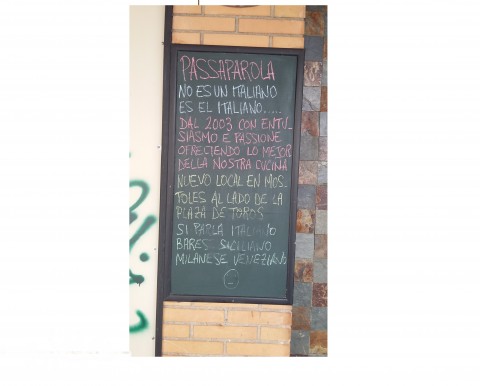 PASSAPAROLA
NO ES UN ITALIANO
ES EL ITALIANO.....
DAL 2003 CON ENTU_
SIASMO E PASSIONE
OFRECIENDO LO MEJOR
DELLA NOSTRA CUCINA
NUEVO LOCAL EN MOS_
TOLES AL LADO DE LA
PLAZA DE TOROS
SI PARLA ITALIANO
BARES SICILIANO
MILANESE VENEZIANO